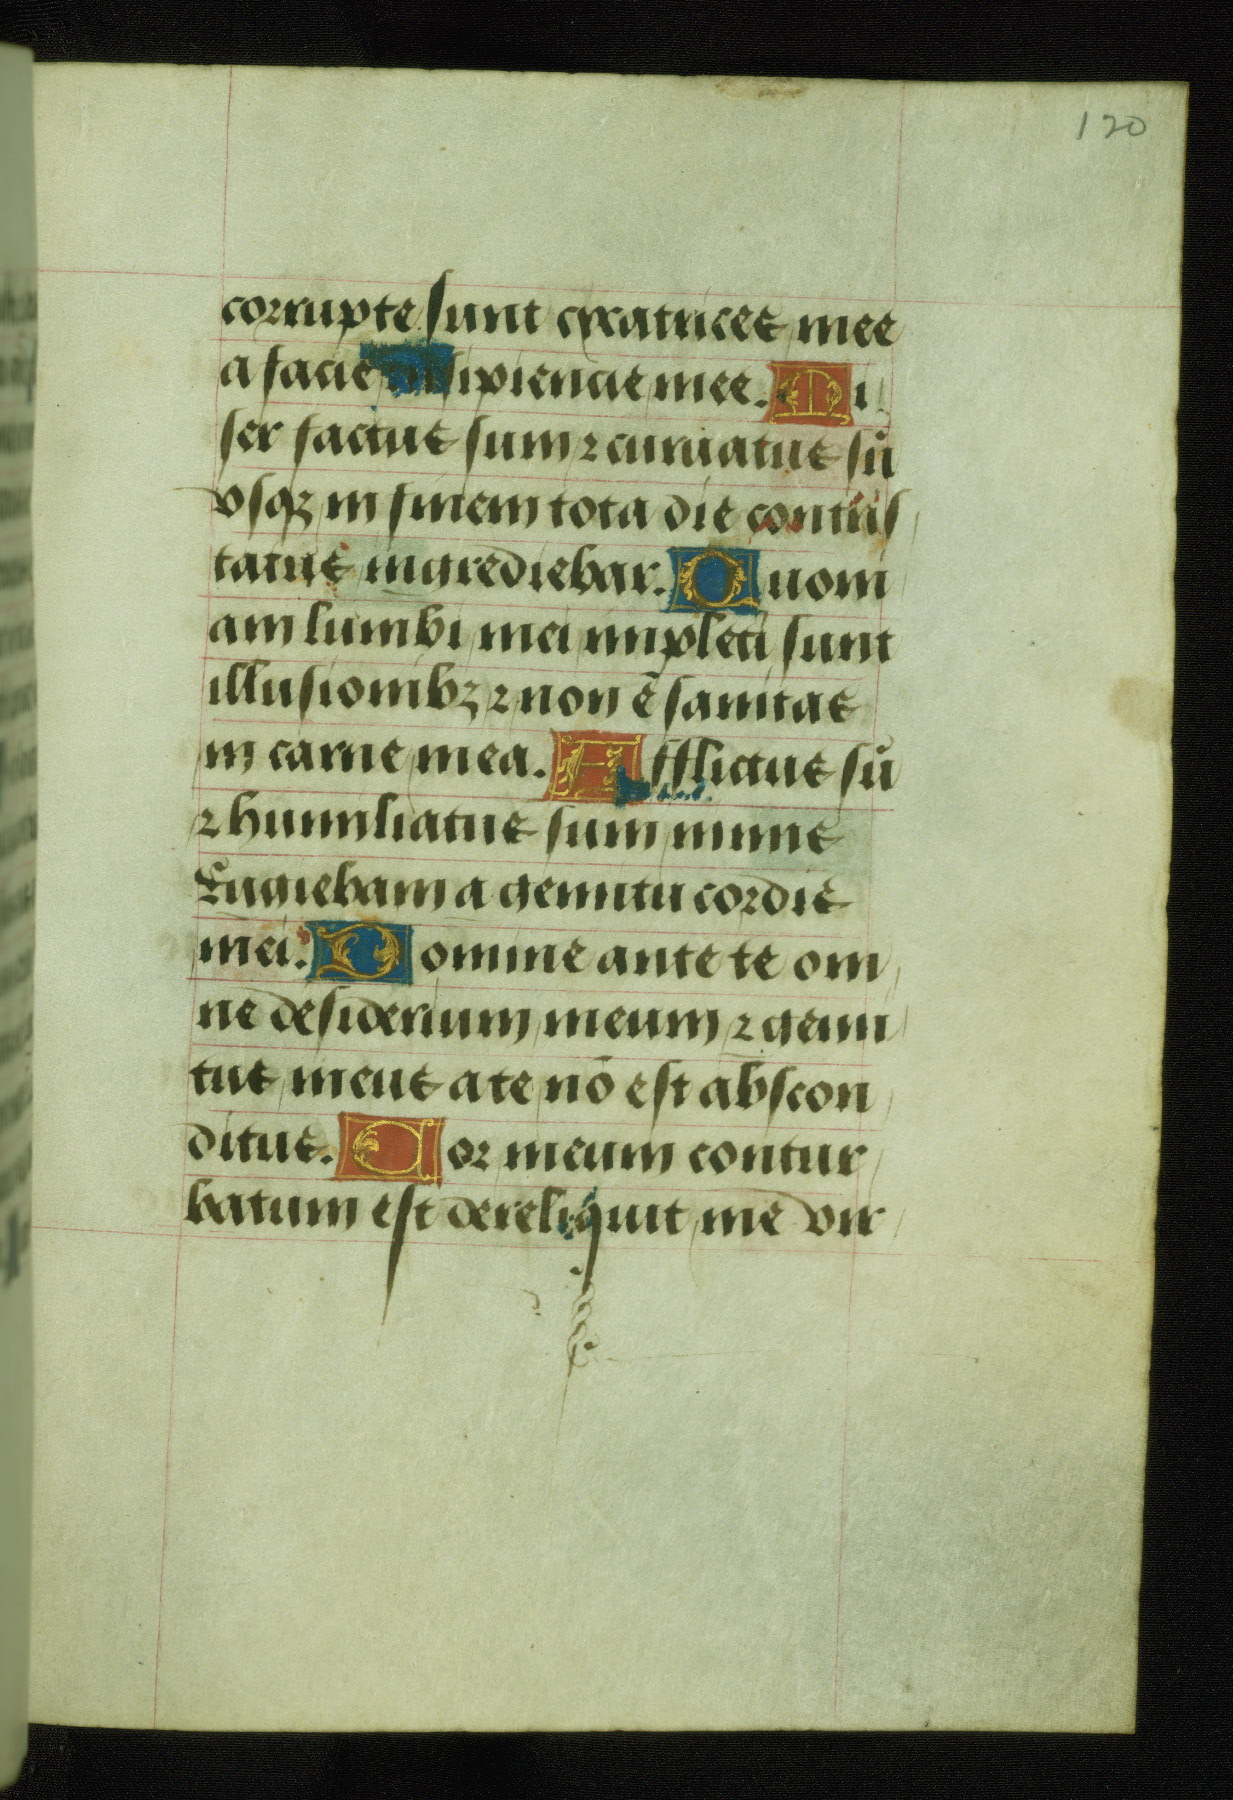 120
corrupte sunt cycatrices mee
a facie insipiencie mee. Mi
ser factus sum ⁊ curuatus sũ
vsqꝫ in finem tota die contris
tatus ingrediebar. Quoni
am lumbi mei impleti sunt
illusionibꝫ ⁊ non ẽ sanitas
in carne mea. Afflictus sũ
⁊ humiliatus sum nimis
Rugiebam a gemitu cordis
mei. Domine ante te om
ne desiderium meum ⁊ gemi
tus meus a te nõ est abscon
ditus. Cor meum contur
batum est dereliquit me vir